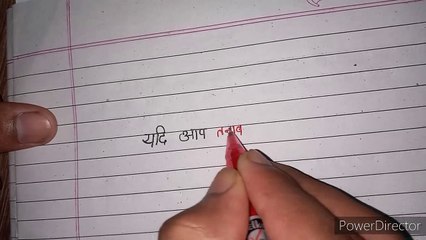 यदि आप तनाव
PowerDirector